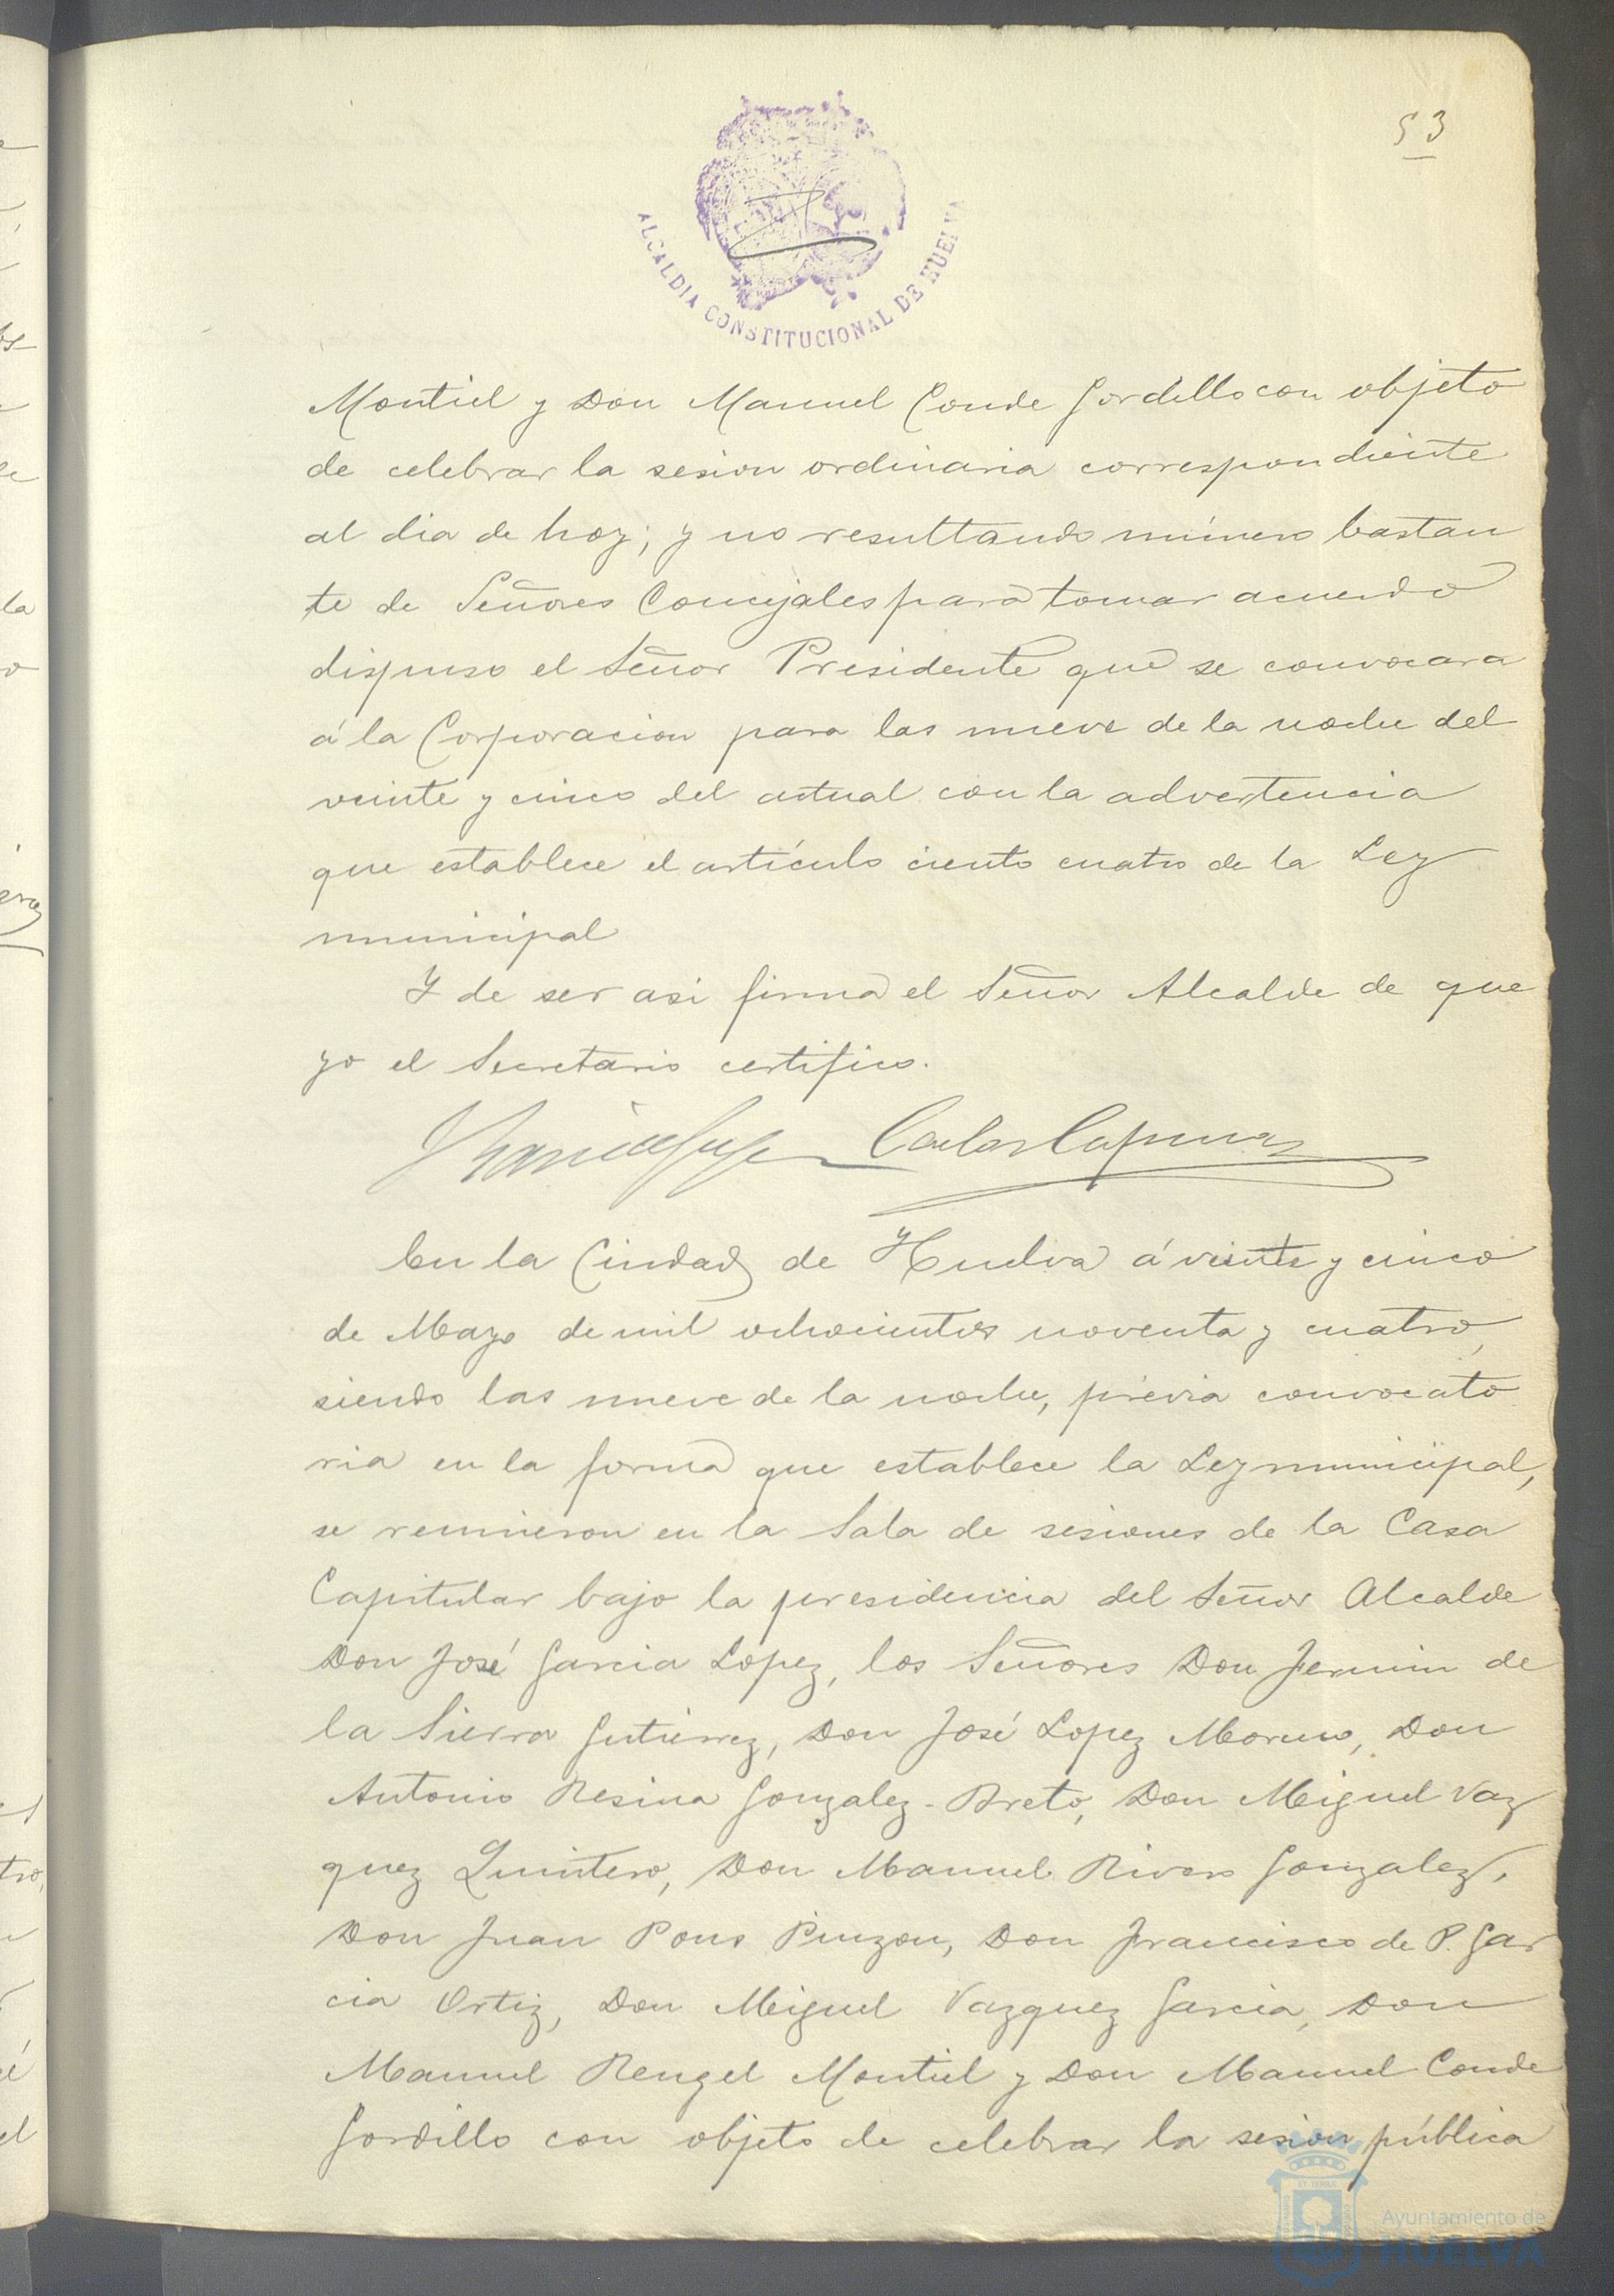 53
ALCALDIA CONSTITUCIONAL DE HUELVA
Montiel y Don Manuel Conde Gordillo con objeto
de celebrar la sesion ordinaria correspondiente
al dia de hoy; y no resultando número bastan
te de Señores Concejales para tomar acuerdo
dispuso el Señor Presidente que se convocara
á la Corporacion para las nueve de la noche del
veinte y cinco del actual con la advertencia
que establece el artículo ciento cuatro de la Ley
municipal
Y de ser asi firma el Señor Alcalde de que
yo el Secretario certifico.
En la Ciudad de Huelva á veinte y cinco
de Mayo de mil ochocientos noventa y cuatro,
siendo las nueve de la noche, prévia convocato
ria en la forma que establece la Ley municipal,
se reunieron en la Sala de sesiones de la Casa
Capitular bajo la presidencia del Señor Alcalde
Don José Garcia Lopez, los Señores Don Fermin de
la Sierra Gutierrez, Don José Lopez Moreno, Don
Antonio Resina Gonzalez-Breto, Don Miguel Vaz
quez Quintero, Don Manuel Rivero Gonzalez,
Don Juan Pons Pinzon, Don Francisco de P. Gar
cia Ortiz, Don Miguel Vazquez Garcia, Don
Manuel Rengel Montiel y Don Manuel Conde
Gordillo con objeto de celebrar la sesion pública
Ayuntamiento de
HUELVA